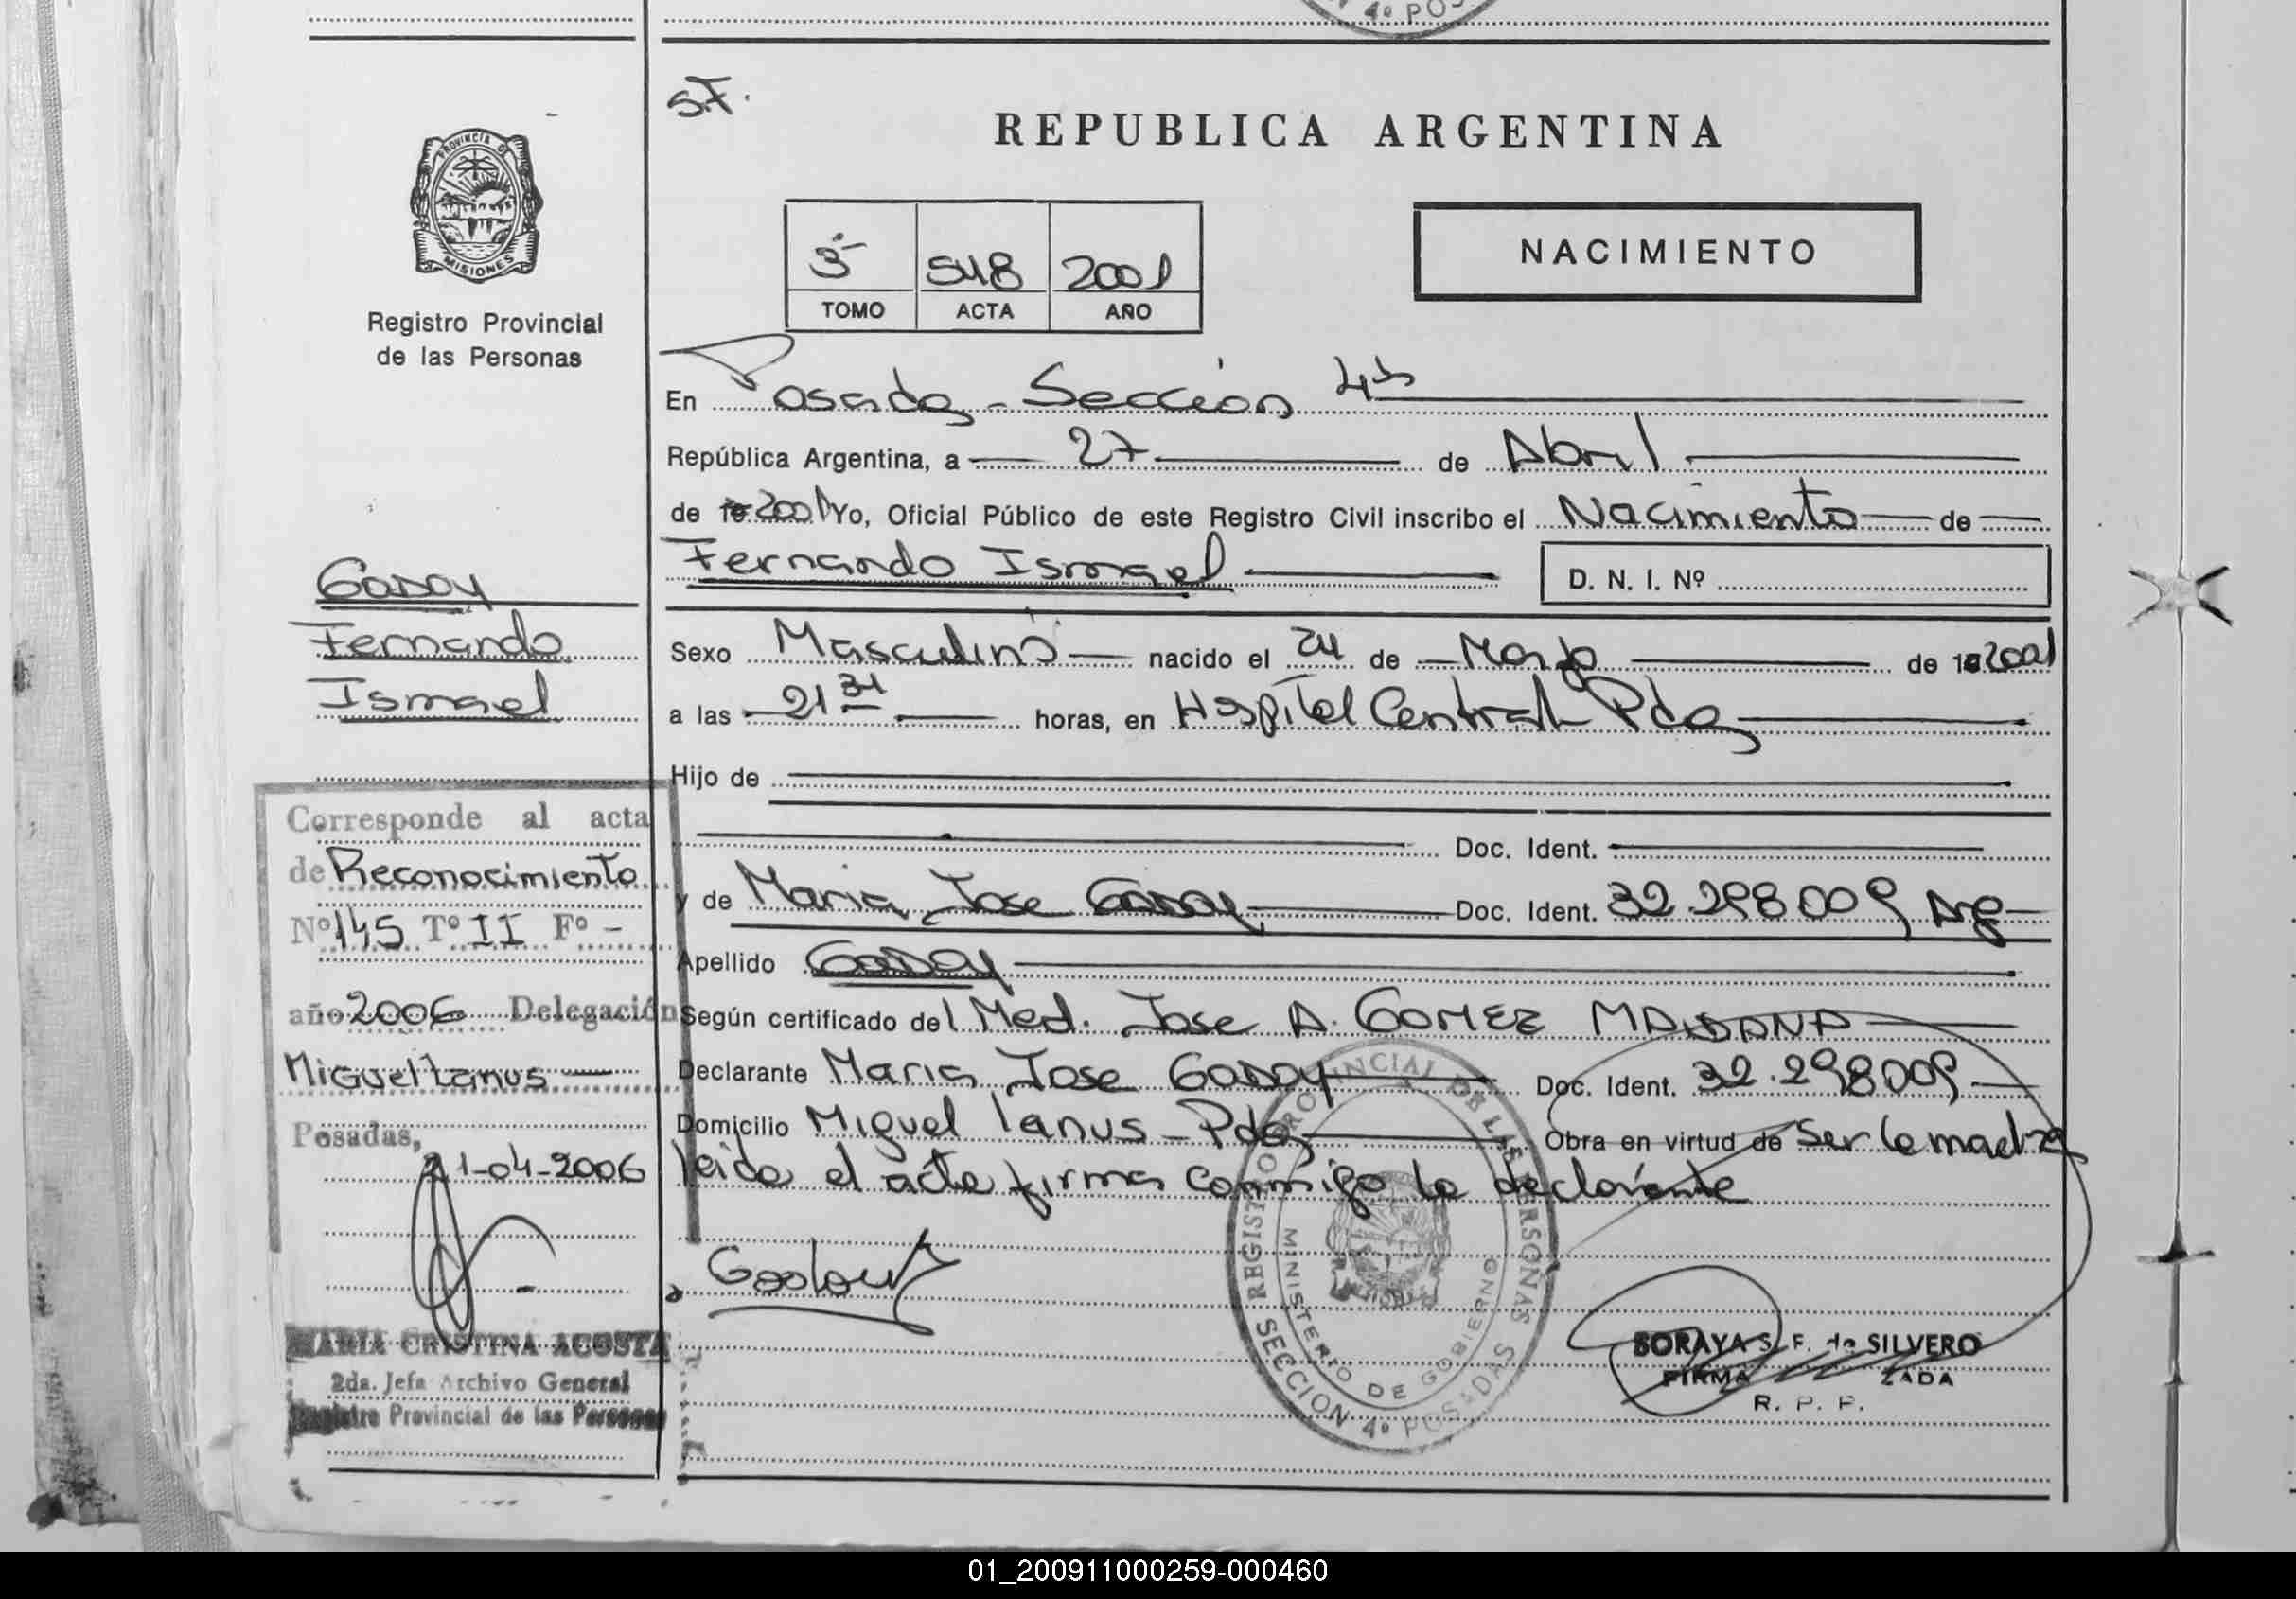 4º POS
S.F.
REPUBLICA ARGENTINA
PROVINCIA DE
MISIONES
Registro Provincial
de las Personas
3- 548 2001
TOMO ACTA AÑO
NACIMIENTO
En Posadas - Sección 4ta
República Argentina, a 27 de Abril
de 19 2001 Yo, Oficial Público de este Registro Civil inscribo el Nacimiento de
Fernando Ismael D. N. I. Nº
GODOY
Fernando
Ismael
Sexo Masculino nacido el 24 de Marzo de 19 2001
a las 21 34 horas, en Hospital Central Pdas
Hijo de
Doc. Ident.
y de Maria Jose GODOY Doc. Ident. 32.298009 Arg
Apellido GODOY
Según certificado del Med. Jose A. GOMEZ MAIDANA
Declarante Maria Jose GODOY Doc. Ident. 32.298009
Domicilio Miguel Lanus - Pdas Obra en virtud de ser la madre
leida el acta firma conmigo la declarante
Godoy
Corresponde al acta
de Reconocimiento
Nº 145 Tº II Fº -
año 2006 Delegación
Miguel Lanus
Posadas,
21-04-2006
MARIA CRISTINA ACOSTA
2da. Jefa Archivo General
Registro Provincial de las Personas
REGISTRO PROVINCIAL DE LAS PERSONAS
MINISTERIO DE GOBIERNO
SECCION 4º POSADAS
SORAYA S. F. de SILVERO
FIRMA ZADA
R. P. P.
01_200911000259-000460